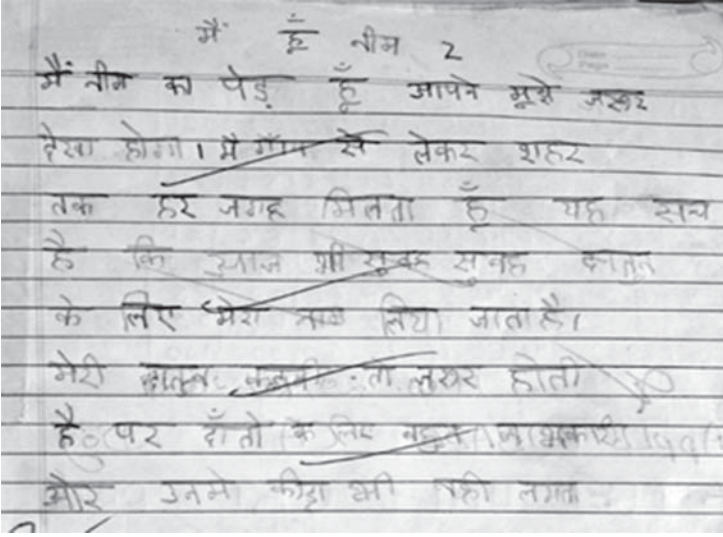 मैं हूँ नीम 2
मैं नीम का पेड़ हूँ आपने मुझे जरूर
देखा होगा। मै गाँव से लेकर शहर
तक हर जगह मिलता हूँ यह सच
है कि आज भी सुबह सुबह दातुन
के लिए मेरा नाम लिया जाता है।
मेरी दातुन कड़वी तो जरूर होती
है पर दाँतो के लिए बहुत लाभकारी
और उनमे कीड़ा भी नही लगता